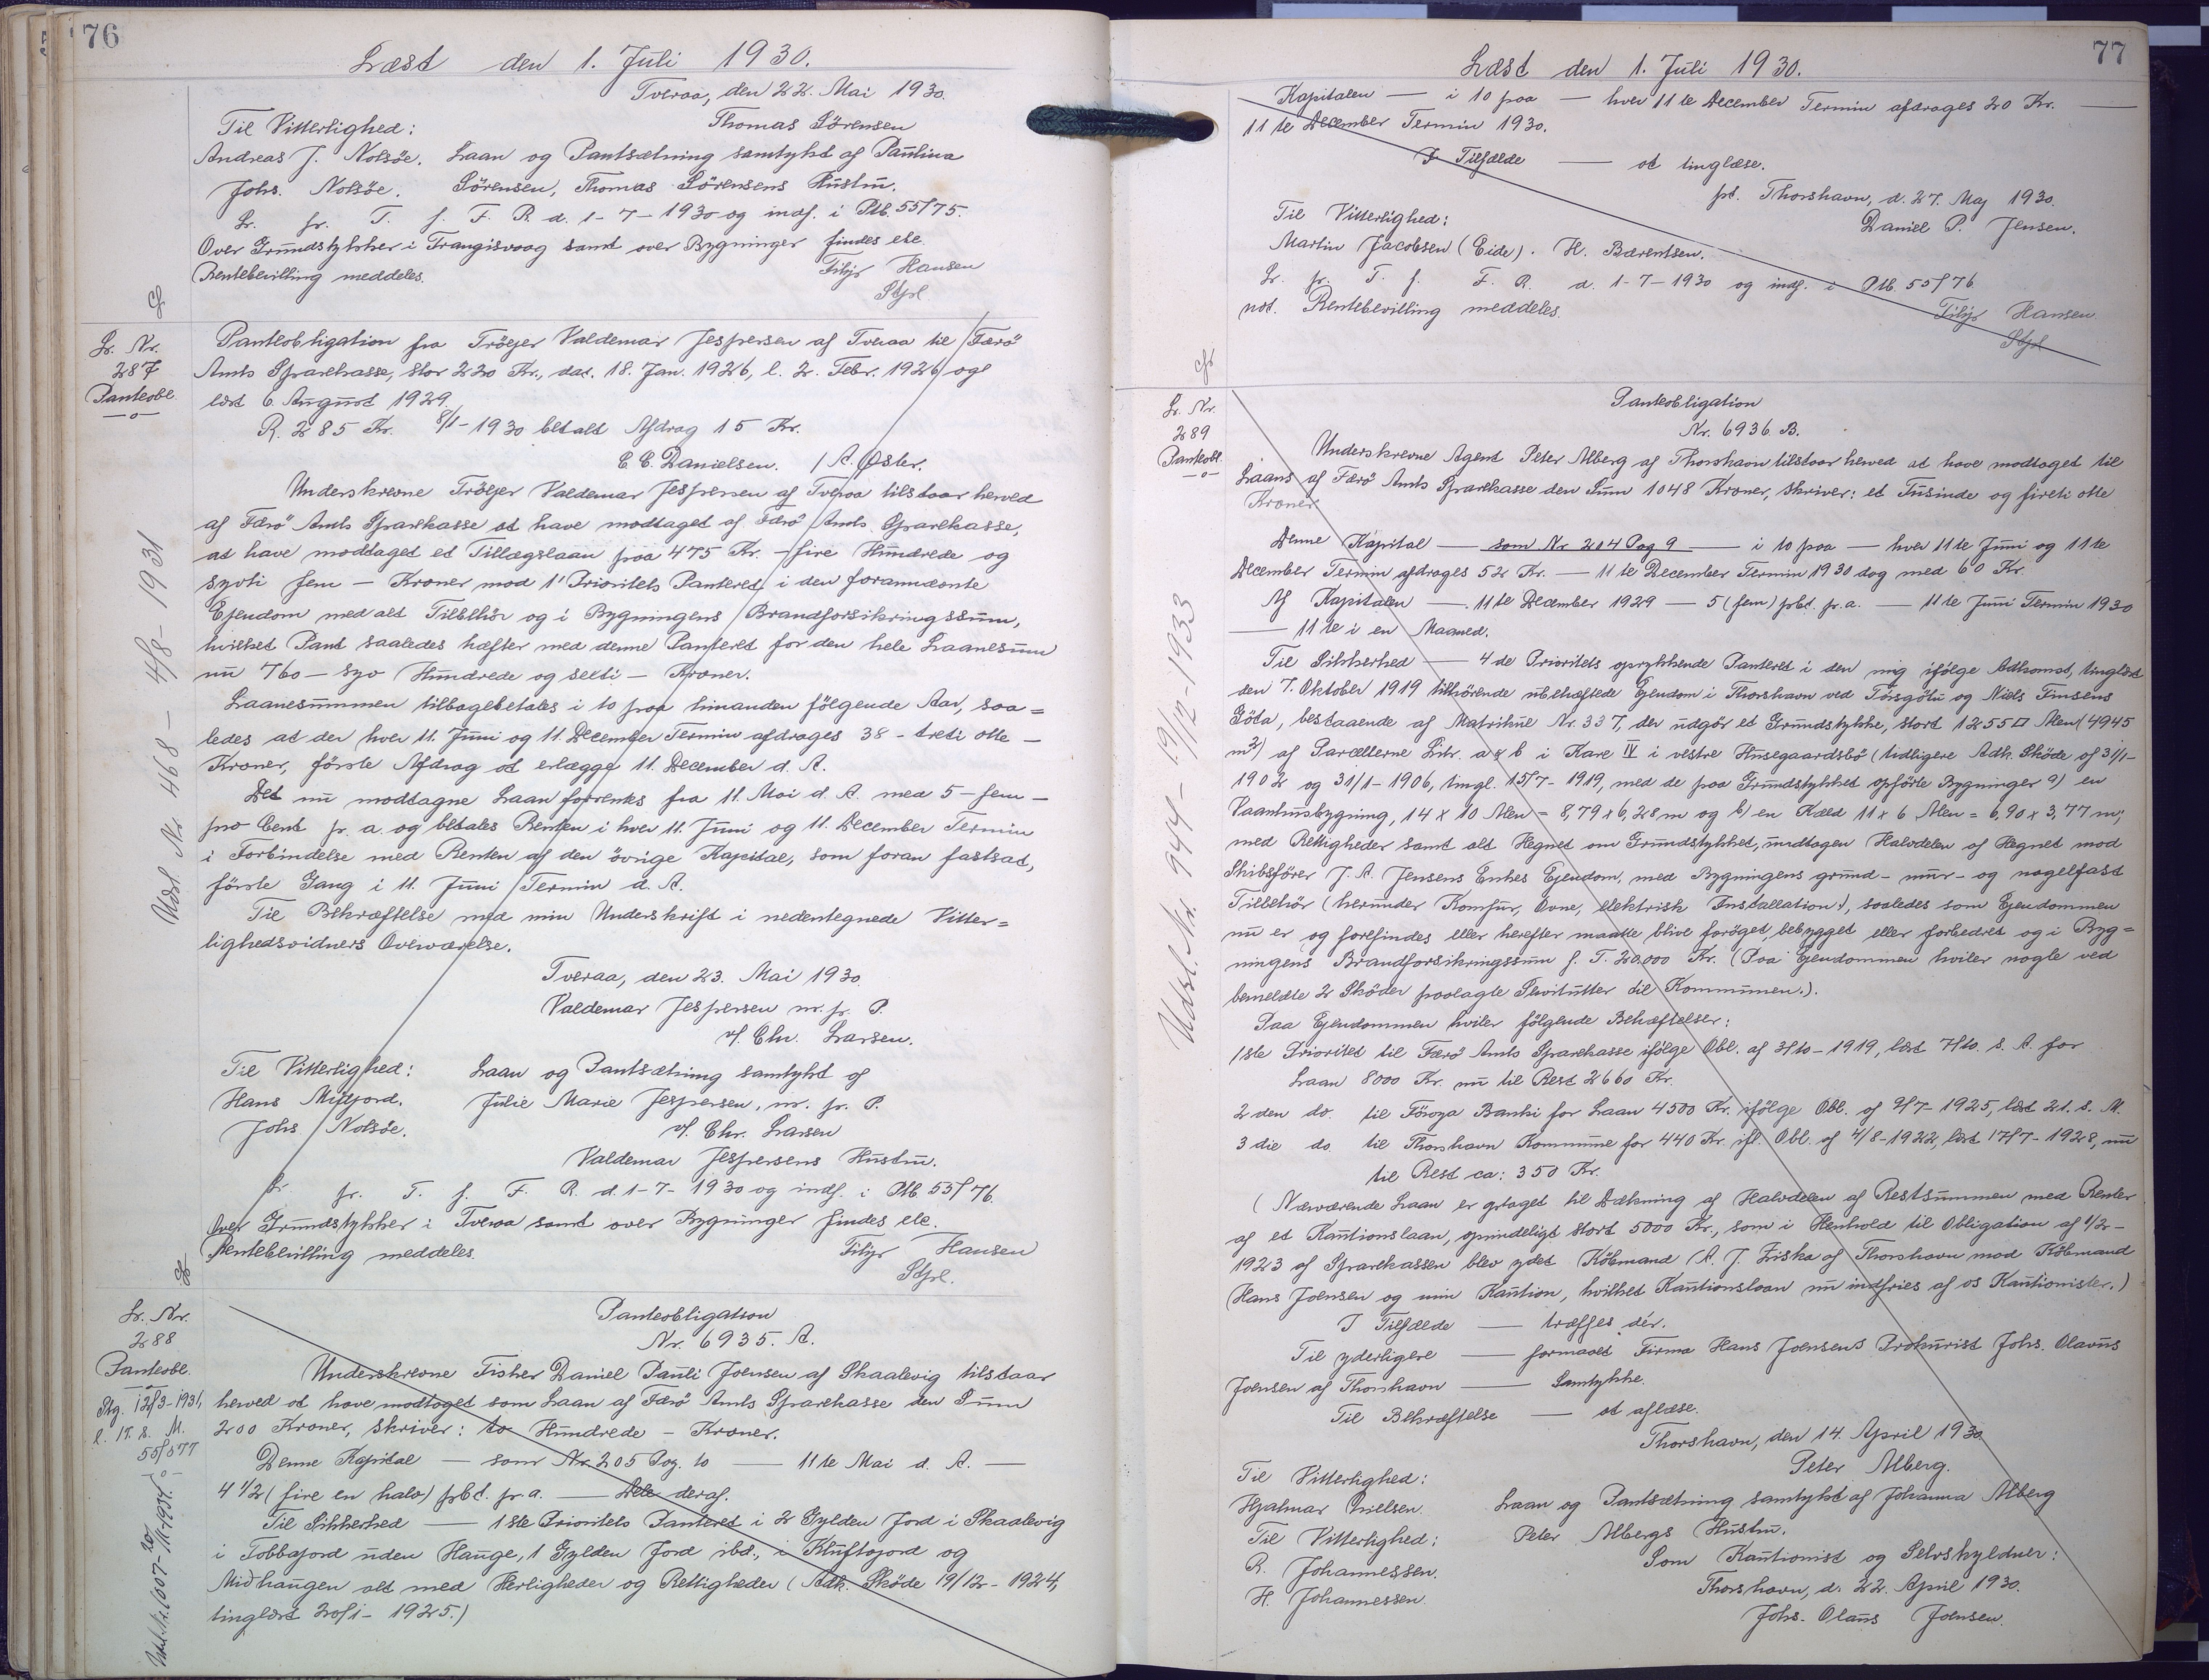 76
Læst den 1. Juli 1930.
Tveraa, den 22. Mai 1930.
Til Vitterlighed: Thomas Sörensen
Andreas J. Nolsöe. Laan og Pantsætning samtykt af Paulina
Johs. Nolsöe. Sörensen, Thomas Sörensens Hustru.
Lr. fr. T. f. F. R. d. 1-7-1930 og indf. i Ptb. 55/75.
Over Grundstykker i Trangisvaag samt over Bygninger findes ele.
Rentebevilling meddeles. Filip Hansen
Stfd.
Lr. Nr.
287
Panteobl.
Udsl. Nr 468 - 4/8-1931
Panteobligation fra Tröjer Valdemar Jespersen af Tveraa til Færö
Amts Sparekasse, stor 220 Kr., dat. 18. Jan. 1926, l. 2. Febr. 1926 og
læst 6. August 1929.
R. 285 Kr. 8/1-1930 betalt Afdrag 15 Kr.
E. C. Danielsen. / A. Öster.
Underskrevne Tröjer Valdemar Jespersen af Tveraa tilstaar herved
af Færö Amts Sparekasse at have modtaget af Færö Amts Sparekasse,
at have modtaget et Tillægslaan paa 475 Kr. - fire Hundrede og
syvti fem - Kroner mod 1' Prioritets Panteret i den forannævnte
Ejendom med alt Tilbehör og i Bygningens Brandforsikringssum,
hvilket Pant saaledes hæfter med denne Panteret for den hele Laanesum
nu 760 - syv Hundrede og sexti - Kroner.
Laanesummen tilbagebetales i 10 paa hinanden fölgende Aar, saa=
ledes at der hver 11. Juni og 11. December Termin afdrages 38 - treti otte -
Kroner, förste Afdrag at erlægge 11. December d. A.
Det nu modtagne Laan forrentes fra 11. Mai d. A. med 5 - fem -
pro Cent p. a. og betales Renten i hver 11. Juni og 11. December Termin
i Forbindelse med Renten af den övrige Kapital, som foran fastsat,
förste Gang i 11. Juni Termin d. A.
Til Bekræftelse med min Underskrift i nedentegnede Vitter=
lighedsvidners Overværelse.
Tveraa, den 23. Mai 1930.
Valdemar Jespersen m. p. P.
v/. Chr. Larsen.
Til Vitterlighed: Laan og Pantsætning samtykt af
Hans Midfjord. Julie Marie Jespersen, m. p. P.
Johs Nolsöe. v/. Chr. Larsen
Valdemar Jespersens Hustru.
Lr. fr. T. f. F. R. d. 1-7-1930 og indf. i Ptb. 55/76.
Over Grundstykker i Tveraa samt over Bygninger findes ele.
Rentebevilling meddeles. Filip Hansen
Stfd.
Lr. Nr.
288
Panteobl.
Ptg. 12/3-1931,
l. 17. s. M.
55/577
Udsl. Nr. 1007- 20/11-1934.
Panteobligation
Nr. 6935. A.
Underskrevne Fisker Daniel Pauli Joensen af Skaalevig tilstaar
herved at have modtaget som Laan af Færö Amts Sparekasse den Sum
200 Kroner, skriver: to Hundrede - Kroner.
Denne Kapital — som Nr. 205 Pag. 10 — 11te Mai d. A. —
4 1/2 (fire en halv) pCt. p. a. — Dele deraf.
Til Sikkerhed — 1ste Prioritets Panteret i 2 Gylden Jord i Skaalevig
i Tobbajord uden Hauge, 1 Gylden Jord ibd., i Kluftojord og
Miðhaugen alt med Herligheder og Rettigheder (Adk. Sköde 19/12-1924,
tinglæst 20/1-1925.)
77
Læst den 1. Juli 1930.
Kapitalen — i 10 paa — hver 11te December Termin afdrages 20 Kr. —
11te December Termin 1930.
I Tilfælde — at tinglæse.
pt. Thorshavn, d. 27. Maj 1930.
Til Vitterlighed: Daniel P. Jensen.
Martin Jacobsen (Eide). H. Bærentsen.
Lr. fr. T. f. F. R. d. 1-7-1930 og indf. i Ptb. 55/76
not. Rentebevilling meddeles. Filip Hansen
Stfd.
Lr. Nr.
289
Panteobl.
Udsl. Nr. 944 - 19/12-1933
Panteobligation
Nr. 6936. B.
Underskrevne Agent Peter Alberg af Thorshavn tilstaar herved at have modtaget til
Laans af Færö Amts Sparekasse den Sum 1048 Kroner, skriver: et Tusinde og fireti otte
Kroner
Denne Kapital — som Nr 204 Pag 9 — i 10 paa — hver 11te Juni og 11te
December Termin afdrages 52 Kr. — 11te December Termin 1930 dog med 60 Kr.
Af Kapitalen — 11te December 1929 — 5 (fem) pCt. p. a. — 11te Juni Termin 1930
— 11te i en Maaned.
Til Sikkerhed — 4de Prioritets oprykkende Panteret i den mig ifölge Adkomst, tinglæst
den 7. Oktober 1919 tilhörende ubehæftede Ejendom i Thorshavn ved Tórsgötu og Niels Finsens
Göta, bestaaende af Matrikul Nr. 337, der udgör et Grundstykke, stort 1255 □ Alen (4945
m²) af Parcellerne Litr. a & b i Kare IV i vestre Husegaardsbö (tidligere Adk. Sköde af 31/1-
1902 og 31/1-1906, tingl. 15/7-1919, med de paa Grundstykket opförte Bygninger a) en
Vaanhusbygning, 14 x 10 Alen = 8,79 x 6,28 m og b) en Kæld 11 x 6 Alen = 6,90 x 3,77 m,
med Rettigheder samt alt Hegnet om Grundstykket, undtagen Halvdelen af Hegnet mod
Skibsförer J. A. Jensens Enkes Ejendom, med Bygningens grund- mur- og nagelfast
Tilbehör (herunder Komfur, Ovne, elektrisk Installation), saaledes som Ejendommen
nu er og forefindes eller herefter maatte blive foröget, bebygget eller forbedret og i Byg=
ningens Brandforsikringssum f. T. 20.000 Kr. (Paa Ejendommen hviler nogle ved
bemeldte 2 Sköder paalagte Servitutter til Kommunen.).
Paa Ejendommen hviler fölgende Behæftelser:
1ste Prioritet til Færö Amts Sparekasse ifölge Obl. af 3/10-1919, læst 7/10. s. A. for
Laan 8000 Kr. nu til Rest 2660 Kr.
2den do. til Föroya Banki for Laan 4500 Kr. ifölge Obl. af 9/7-1925, læst 21. s. M.
3die do. til Thorshavn Kommune for 440 Kr. ifl. Obl. af 4/8-1922, læst 17/7-1928, nu
til Rest ca: 350 Kr.
(Nærværende Laan er optaget til Dækning af Halvdelen af Restsummen med Renter
af et Kautionslaan, oprindeligt stort 5000 Kr., som i Henhold til Obligation af 1/2-
1923 af Sparekassen blev ydet Köbmand A. J. Ziska af Thorshavn mod Köbmand
Hans Joensen og min Kaution, hvilket Kautionslaan nu indfries af os Kautionister.)
I Tilfælde — træffes dér.
Til yderligere — formaalt Firma Hans Joensens Prokurist Johs. Olavus
Joensen af Thorshavn — Samtykke.
Til Bekræftelse — at aflæse.
Thorshavn, den 14. April 1930
Til Vitterlighed: Peter Alberg.
Hjalmar Nielsen. Laan og Pantsætning samtykt af Johanna Alberg
Til Vitterlighed: Peter Albergs Hustru.
R. Johannessen. Som Kautionist og Selvskyldner:
H. Johannessen. Thorshavn, d. 22. April 1930.
Johs. Olaus Joensen.